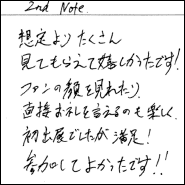 2nd Note.
想定よりたくさん
見てもらえて嬉しかったです!
ファンの顔を見れたり、
直接お礼を言えるのも楽しく、
初出展でしたが満足!
参加してよかったです!!